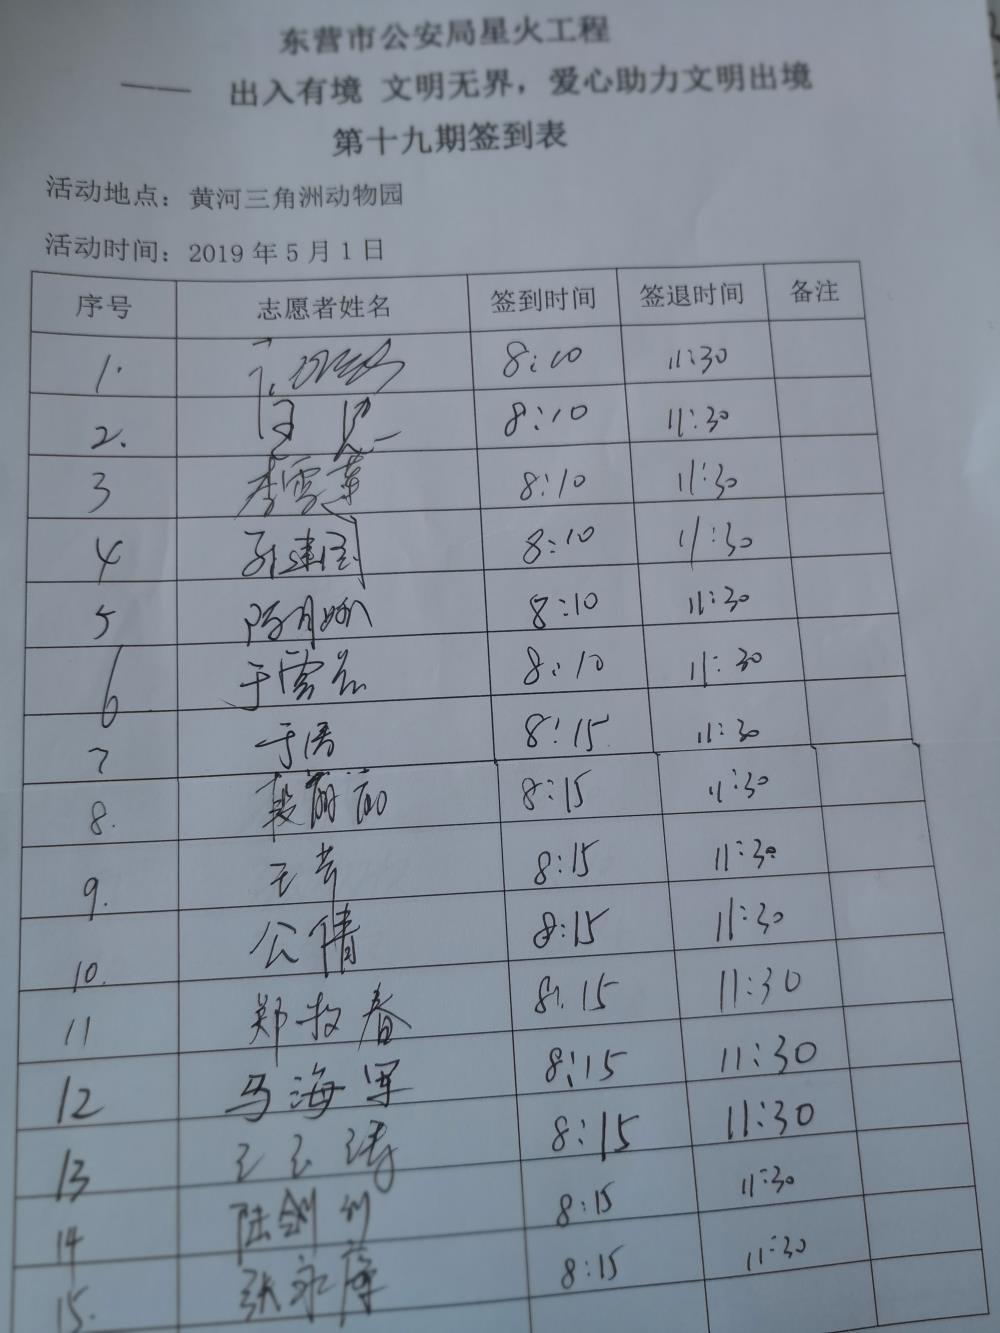 东营市公安局星火工程
—— 出入有境 文明无界，爱心助力文明出境
第十九期签到表
活动地点：黄河三角洲动物园
活动时间：2019 年 5 月 1 日
序号 志愿者姓名 签到时间 签退时间 备注
1. 8:10 11:30
2. 8:10 11:30
3 李雪莲 8:10 11:30
4 孙建国 8:10 11:30
5 8:10 11:30
6 于雪 8:10 11:30
7 于涛 8:15 11:30
8. 段丽丽 8:15 11:30
9. 王芳 8:15 11:30
10. 公倩 8:15 11:30
11 郑牧春 8:15 11:30
12 马海军 8:15 11:30
13 8:15 11:30
14 陆剑利 8:15 11:30
15. 张永庠 8:15 11:30